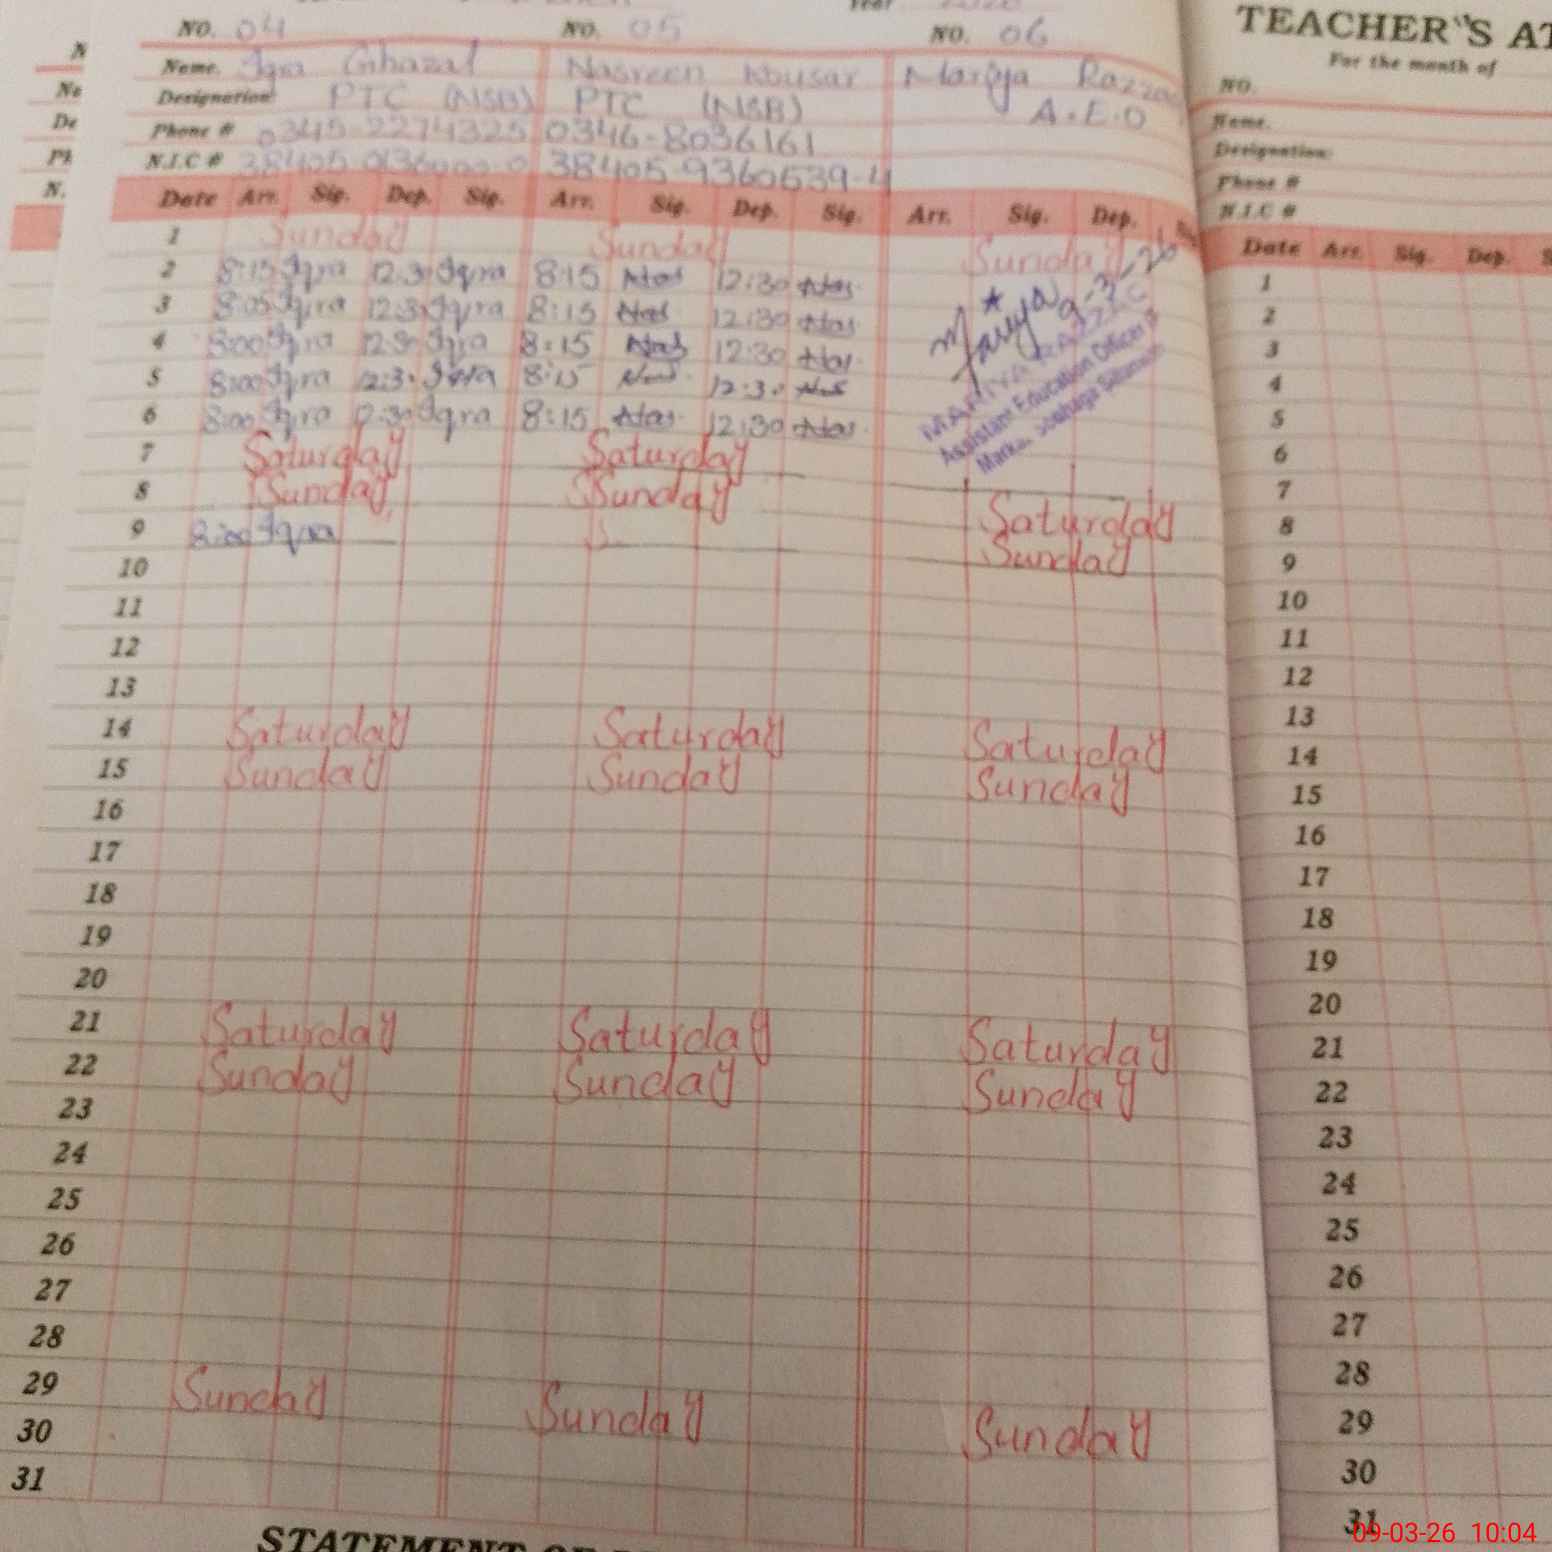 NO. 04 NO. 05 NO. 06
Name. Iqra Ghazal Nasreen Kousar Mariya Razzaq
Designation: PTC (NSB) PTC (NSB) A.E.O
Phone # 0345-2274325 0346-8036161
N.I.C # 38405 38405-9360539-4
Date Arr. Sig. Dep. Sig. Arr. Sig. Dep. Sig. Arr. Sig. Dep.
1 Sunday Sunday Sunday
2 8:15 Iqra 12:3 Iqra 8:15 Nas 12:30 Nas
3 8:00 Iqra 12:3 Iqra 8:15 Nas 12:30 Nas
4 8:00 Iqra 12:30 Iqra 8:15 Nas 12:30 Nas
5 8:00 Iqra 12:3. Iqra 8:15 Nas 12:3. Nas
6 8:00 Iqra 12:30 Iqra 8:15 Nas 12:30 Nas
Mariya 9-3-26
MARIYA RAZZAQ
Assistant Education Officer
7 Saturday Saturday
8 Sunday Sunday Saturday
9 8:00 Iqra Sunday
10
11
12
13
14 Saturday Saturday Saturday
15 Sunday Sunday Sunday
16
17
18
19
20
21 Saturday Saturday Saturday
22 Sunday Sunday Sunday
23
24
25
26
27
28
29 Sunday Sunday Sunday
30
31
STATEMENT
TEACHER"S AT
For the month of
NO.
Name.
Designation:
Phone #
N.I.C #
Date Arr. Sig. Dep. S
1
2
3
4
5
6
7
8
9
10
11
12
13
14
15
16
17
18
19
20
21
22
23
24
25
26
27
28
29
30
31
09-03-26 10:04